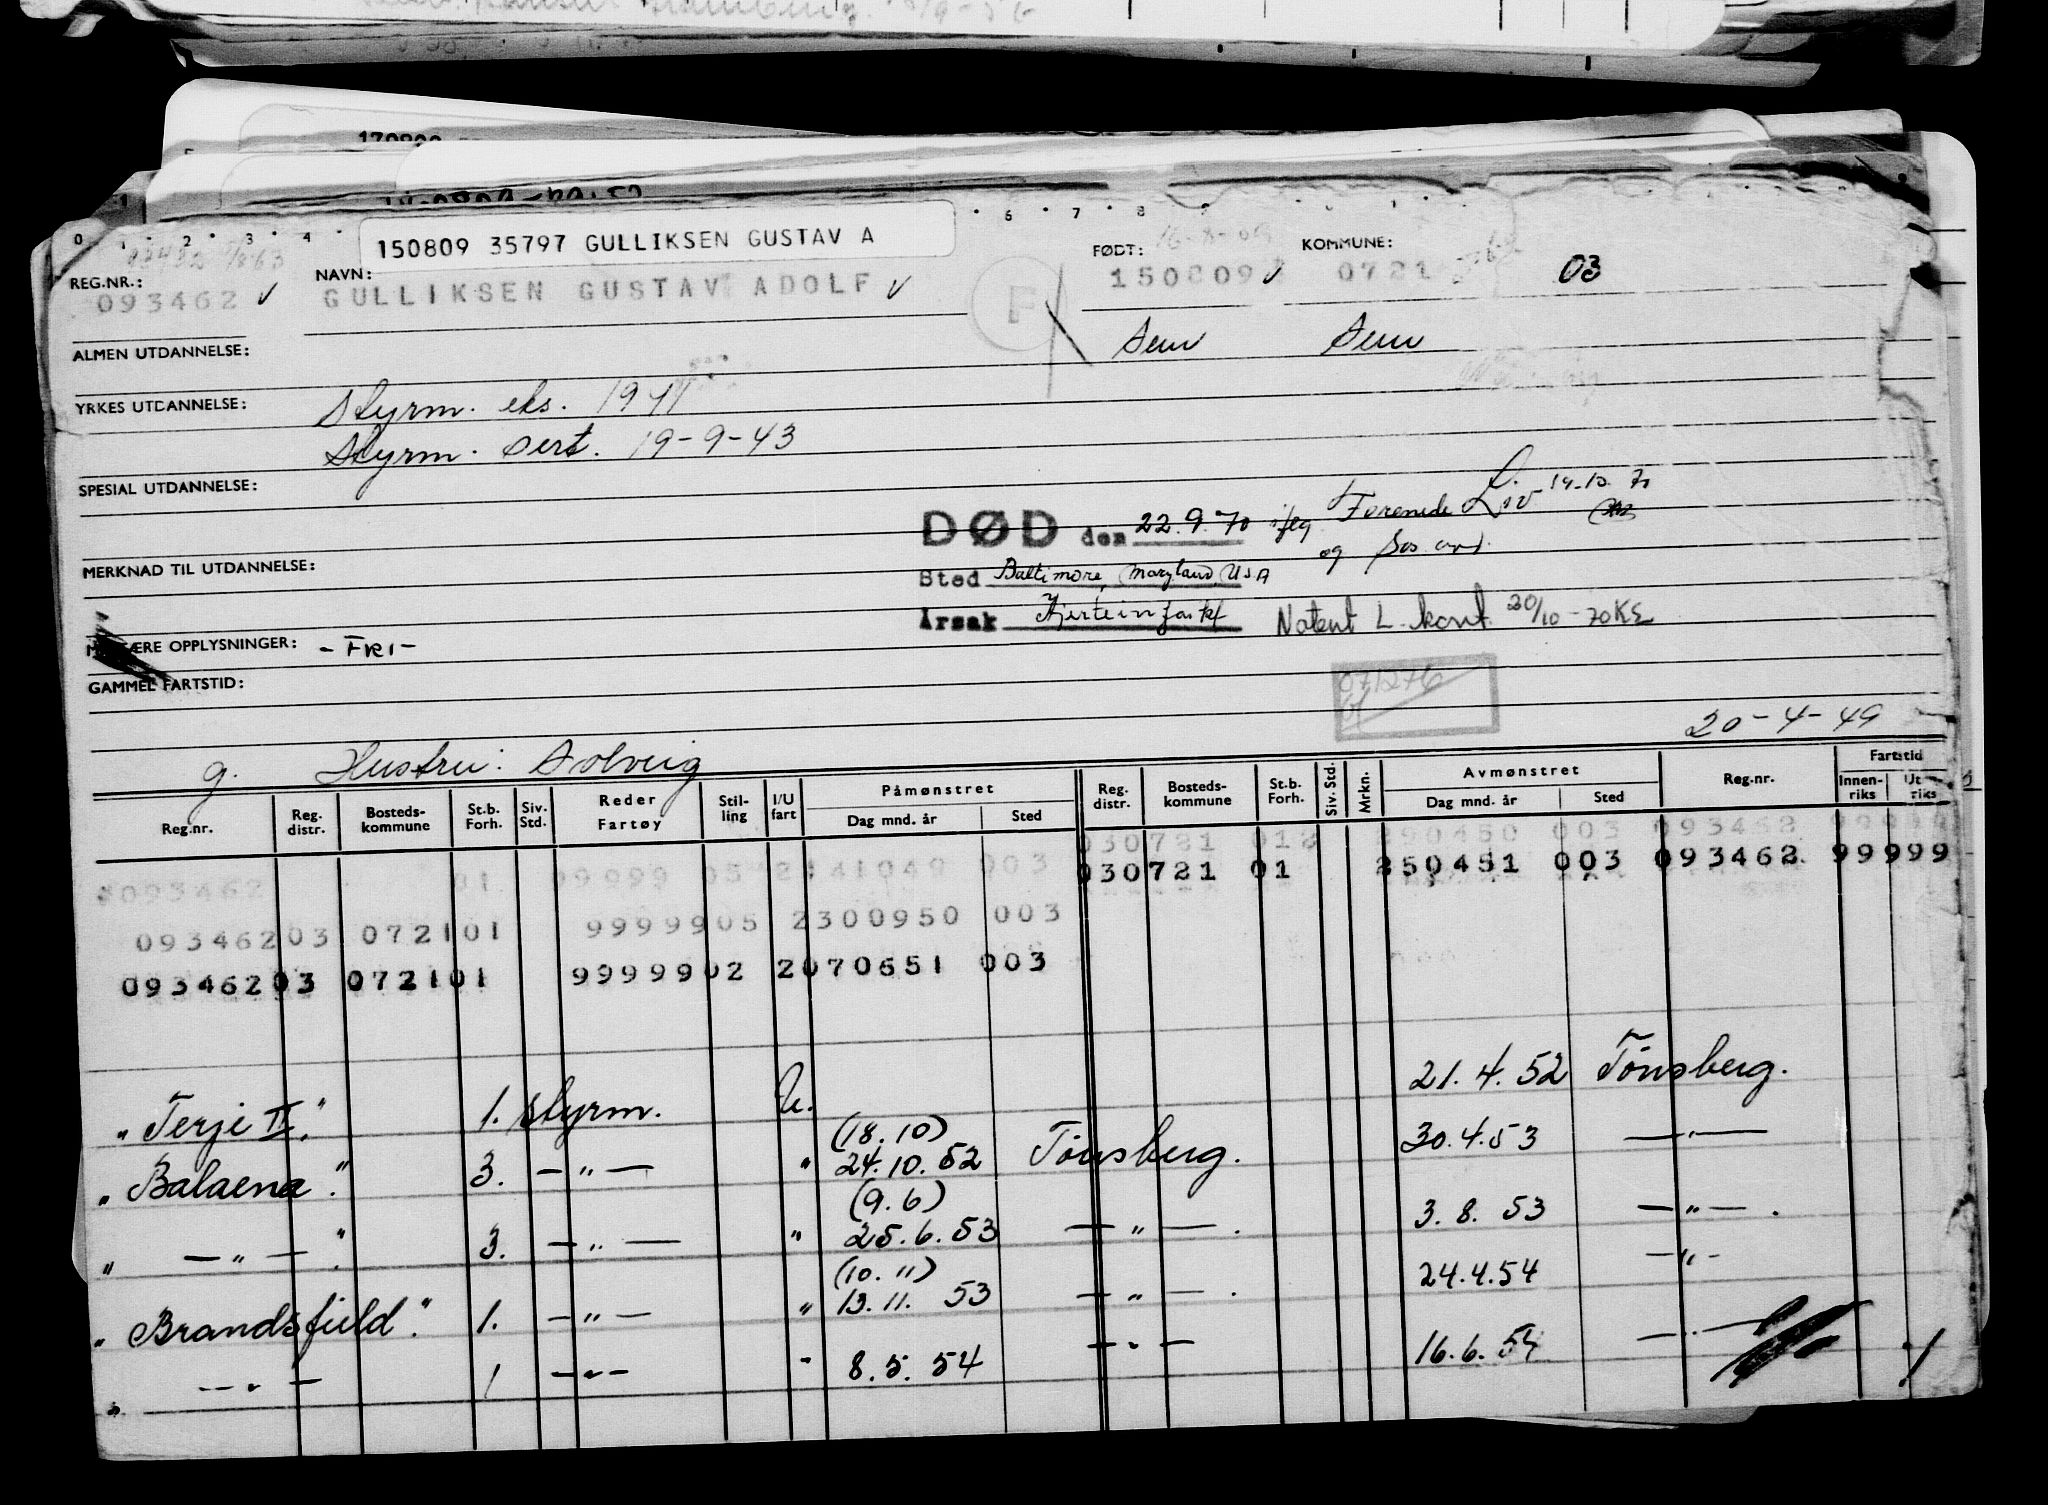 0 1 · 2 · 3 · 4 · 6 · 7 · 8
150809 35797 GULLIKSEN GUSTAV A
REG.NR.: NAVN: FØDT: KOMMUNE:
093462 ✓ GULLIKSEN GUSTAV ADOLF ✓ F 150809 ✓ 0721 03
ALMEN UTDANNELSE: Sem Sem
YRKES UTDANNELSE: Styrm. eks. 1941
Styrm. sert. 19-9-43
SPESIAL UTDANNELSE:
DØD den 22.9.70 ifeg Forenede Liv
og Sos. avd.
MERKNAD TIL UTDANNELSE:
Sted Baltimore, Maryland, USA
Årsak Hjerteinfarkt Notert L. kort. 20/10-70 KE
OPPLYSNINGER: -FRI-
GAMMEL FARTSTID:
071276
20-4-49
g. Hustru: Solveig
Reg.nr. Reg. distr. Bosteds-kommune St.b. Forh. Siv. Std. Reder Fartøy Stil-ling I/U fart Påmønstret Dag mnd. år Sted Reg. distr. Bosteds-kommune St.b. Forh. Siv. Std. Mrkn. Avmønstret Dag mnd. år Sted Reg.nr. Fartstid Innen-riks Ut riks
030721 012 290450 003 093462 99999
093462 01 99999 05 2141049 003 030721 01 250451 003 093462 99999
093462 03 0721 01 99999 05 2300950 003
093462 03 0721 01 99999 02 2070651 003
"Terje II." 1. styrm. U. 21.4.52 Tönsberg.
(18.10)
"Balaena." 3. — " — " 24.10.52 Tönsberg. 30.4.53 — " —
(9.6)
" — " — " 3. — " — " 25.6.53 — " — . 3.8.53 — " — .
(10.11)
"Brandsfield." 1. — " — " 13.11.53 — " — . 24.4.54 — " —
" — " — 1 — " — " 8.5.54 — " — 16.6.54 — " —